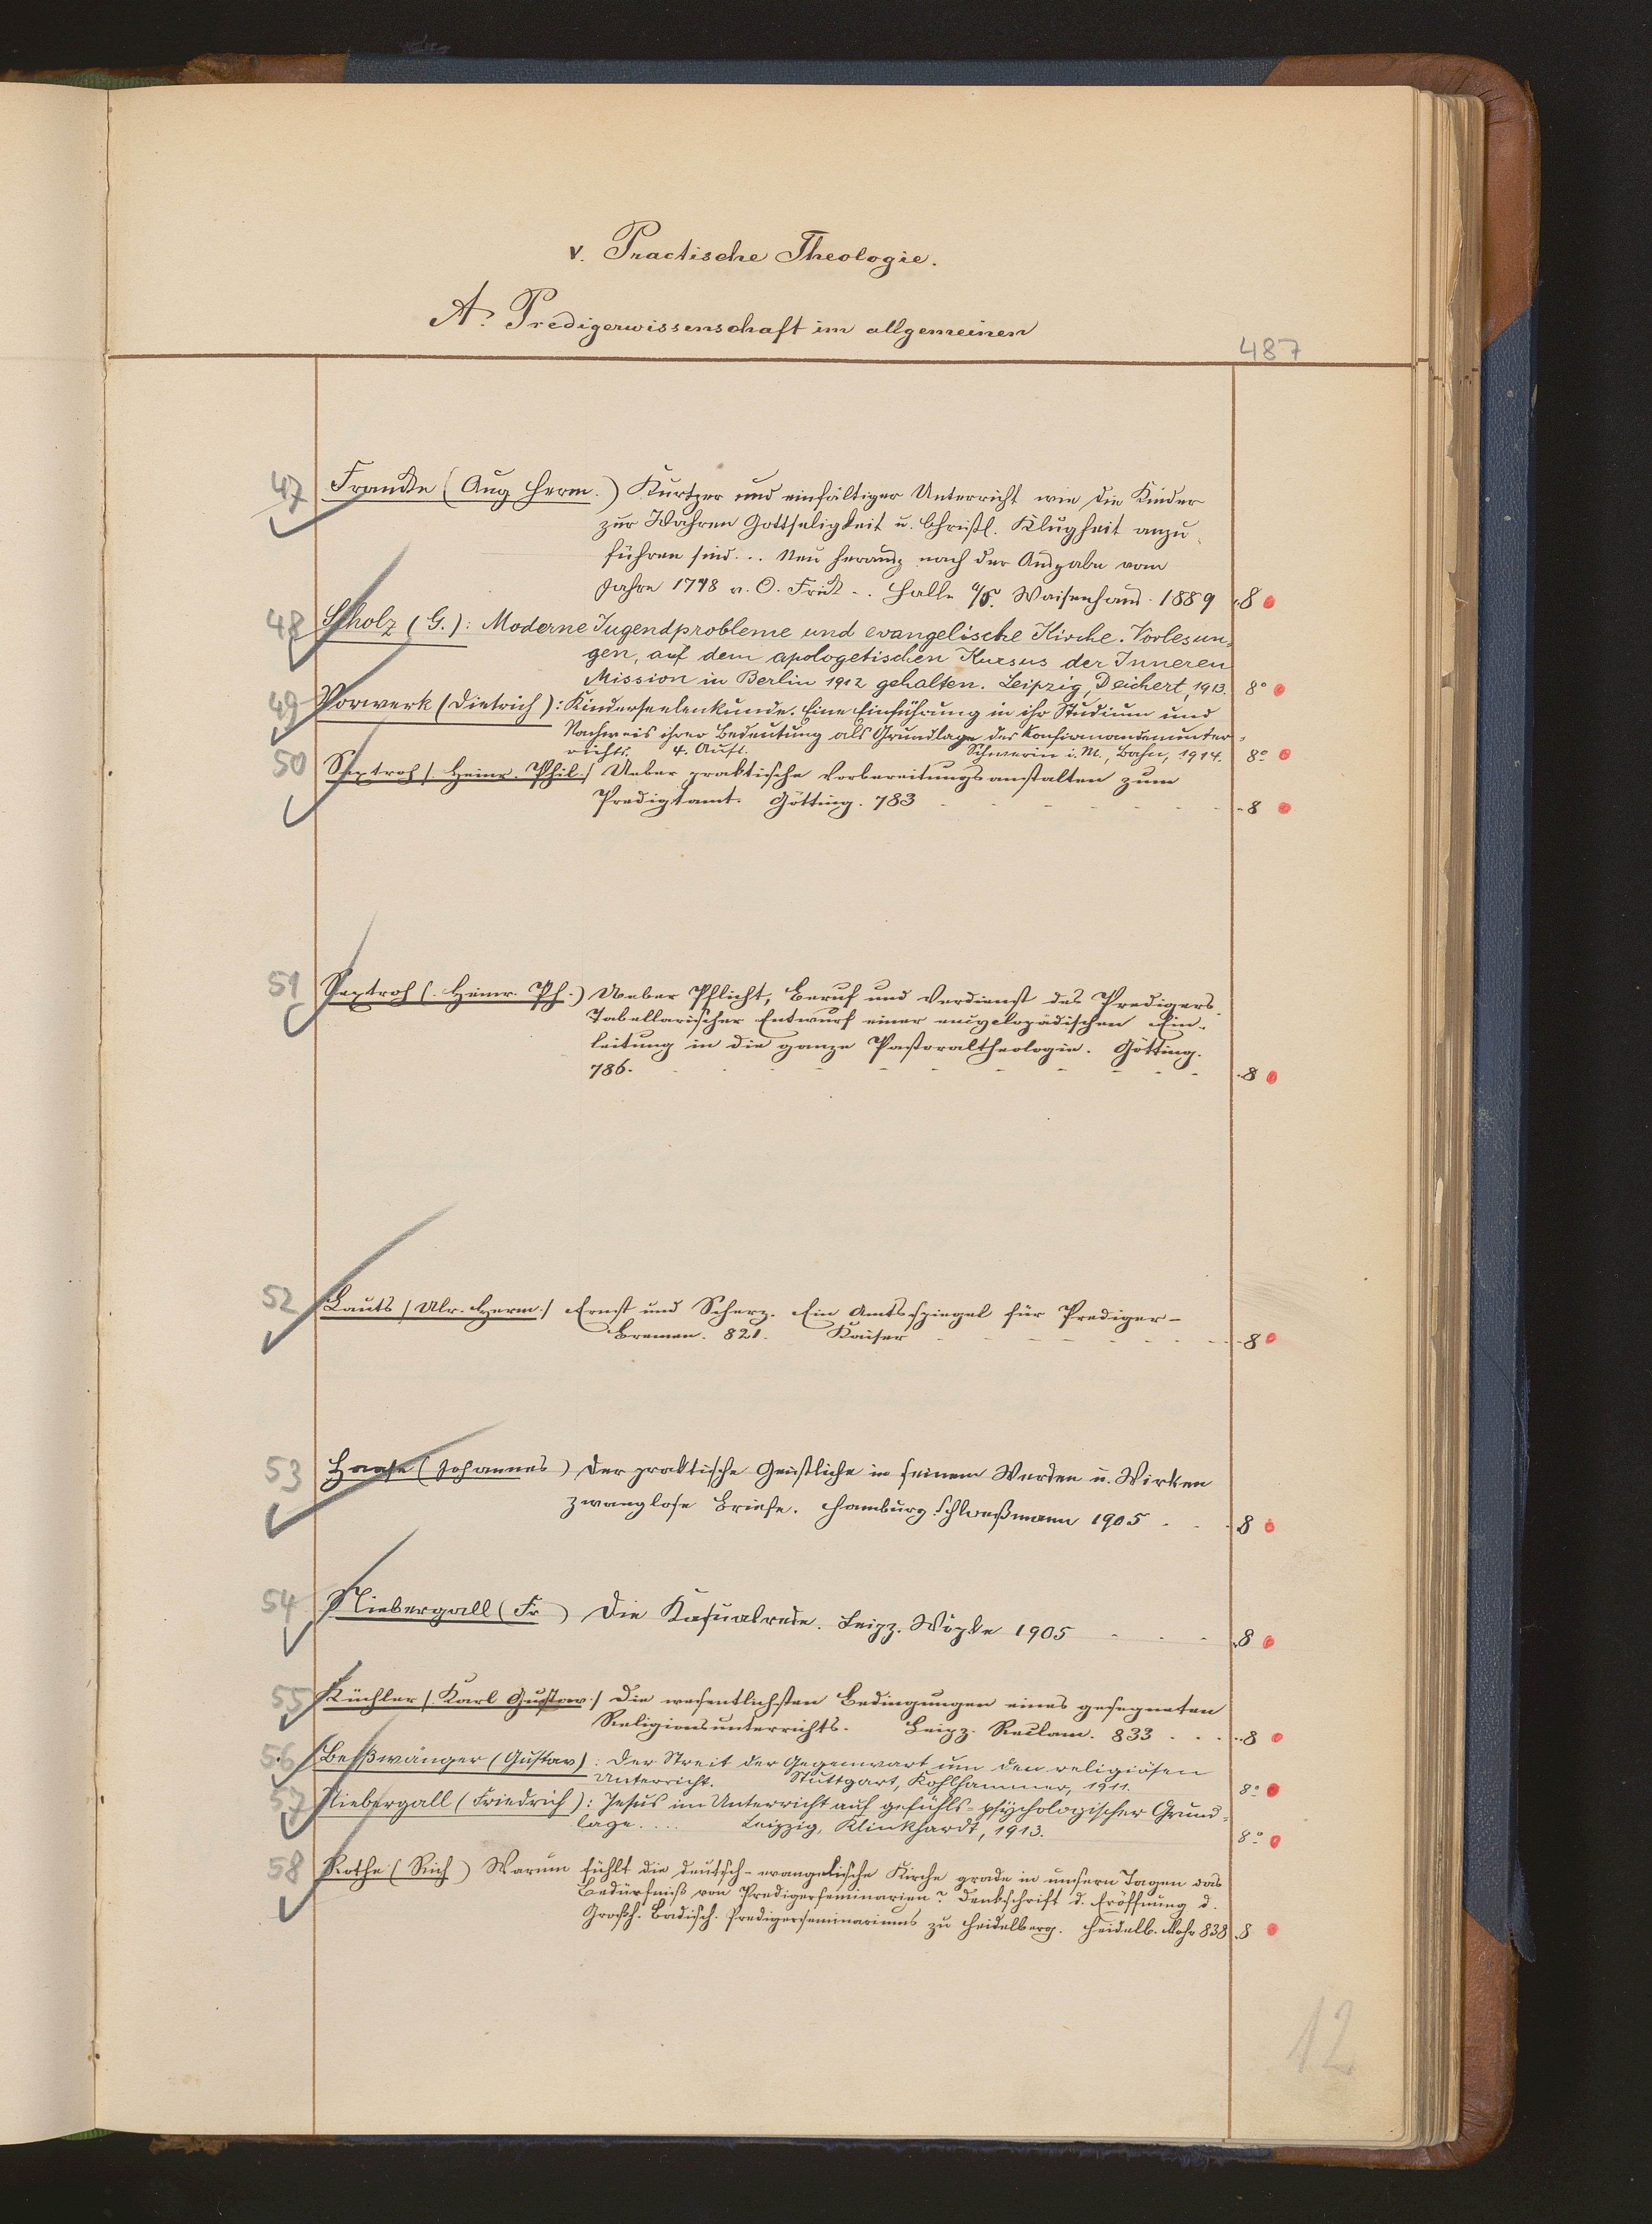 v. Practische Theologie.
A. Predigerwissenschaft im allgemeinen
487
47 Francke (Aug Herm.) Kurtzer und einfältiger Unterricht wie die Kinder
zur Wahren Gottseligkeit u. Christl. Klugheit anzu
führen sind... Neu herausg nach der Ausgabe vom
Jahre 1748 v. O. Frick .. Halle a/S. Waisenhaus. 1889 8
48 Scholz (G.): Moderne Jugendprobleme und evangelische Kirche. Vorlesun=
gen, auf dem apologetischen Kursus der Inneren
Mission in Berlin 1912 gehalten. Leipzig, Deichert, 1913. 8°
49 Vorwerk (Dietrich): Kinderseelenkunde. Eine Einführung in ihr Studium und
Nachweis ihrer Bedeutung als Grundlage des Konfirmandenunter=
richts. 4. Aufl. Schwerin i. M., Bahn, 1914. 8°
50 Sextroh /. Heinr. Phil./ Ueber praktische Vorbereitungsanstalten zum
Predigtamt. Götting. 783 - - - - - - - 8
51 Sextroh (. Heinr. Ph.) Ueber Pflicht, Beruf und Verdienst des Predigers.
Tabellarischer Entwurf einer encyclopädischen Ein-
leitung in die ganze Pastoraltheologie. Götting.
786. - - - - - - - - - 8
52 Lauts / Ulr. Herm./ Ernst und Scherz. Ein Amtsspiegel für Prediger-
Bremen. 821. Kaiser - - - - - - - 8
53 Haase (Johannes) Der praktische Geistliche in seinem Werden u. Wirken
zwanglose Briefe. Hamburg Schloeßmann 1905 - - - 8
54 Niebergall (Fr) Die Kasualrede. Leipz. Wöpke 1905 - - - 8
55 Küchler /. Karl Gustav:/ Die wesentlichsten Bedingungen eines gesegneten
Religionsunterrichts. Leipz. Reclam. 833 . . . . 8
56 Beißwänger (Gustav): Der Streit der Gegenwart um den religiösen
Unterricht. Stuttgart, Kohlhammer, 1911. 8°
57 Niebergall (Friedrich): Jesus im Unterricht auf gefühls=psychologischer Grund=
lage.... Leipzig, Klinkhardt, 1913. 8°
58 Rothe (Rich) Warum fühlt die deutsch-evangelische Kirche grade in unsern Tagen das
Bedürfniß von Predigerseminarien? Denkschrift d. Eröffnung d.
Großh. Badisch. Predigerseminariums zu Heidelberg. Heidelb. Mohr 838 8
12